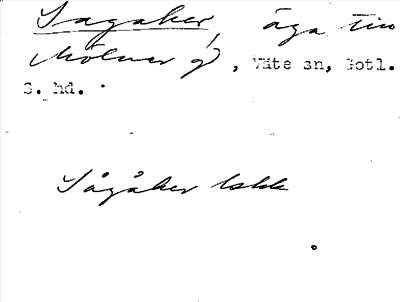 Sagaker, äga till
Mölner g), Väte sn, Gotl.
S. hd.
Sågåker